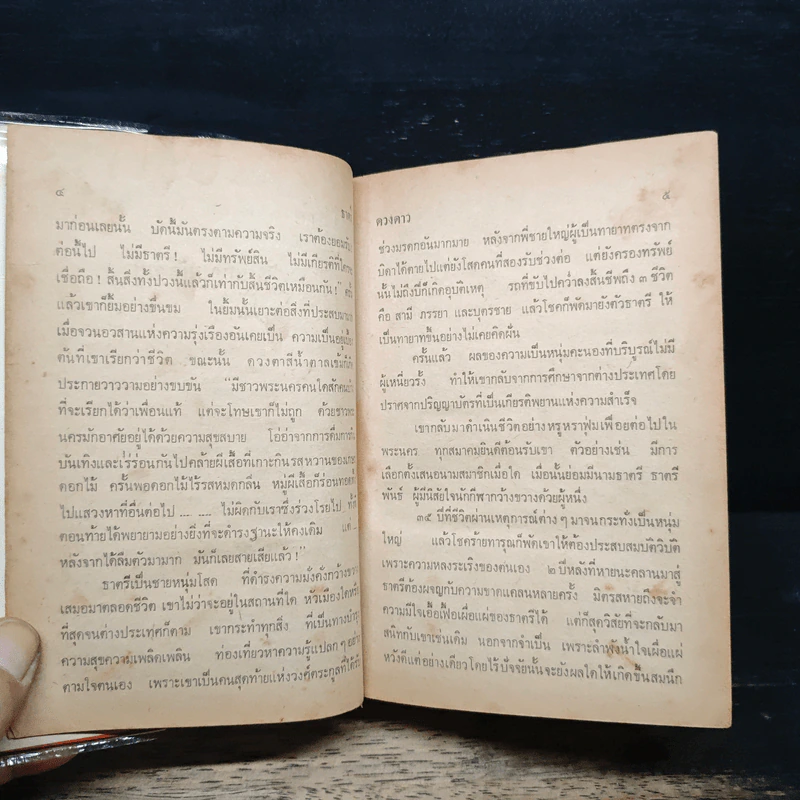 ๔
ธาตรี
มาก่อนเลยนั้น บัดนี้มันตรงตามความจริง เราต้องยอมรับ
ต่อนี้ไป ไม่มีธาตรี! ไม่มีทรัพย์สิน ไม่มีเกียรติที่ใคร
เชื่อถือ! สิ้นสิ่งทั้งปวงนี้แล้วก็เท่ากับสิ้นชีวิตเหมือนกัน!" ครั้น
แล้วเขาก็ยิ้มอย่างขื่นขม ในยิ้มนั้นเยาะต่อสิ่งที่ประสบมา
เมื่อจวนอวสานแห่งความรุ่งเรืองอันเคยเป็น ความเป็นอยู่
ดันที่เขาเรียกว่าชีวิต ขณะนั้น ดวงตาสีน้ำตาลเข้มก็
ประกายวาววามอย่างขบขัน "มีชาวพระนครคนใดสักคนบ้าง
ที่จะเรียกได้ว่าเพื่อนแท้ แต่จะโทษเขาก็ไม่ถูก ด้วยชาวพระ
นครมักอาศัยอยู่ได้ด้วยความสุขสบาย โอ่อ่าจากการดื่มการ
บันเทิงและเร่ร่อนกันไปคล้ายผีเสื้อที่เกาะกินรสหวานของเกษร
ดอกไม้ ครั้นพอดอกไม้ไร้รสหมดกลิ่น หมู่ผีเสื้อก็ร่อนทอด
ไปแสวงหาที่อื่นต่อไป .... .... ไม่ผิดกับเราซึ่งร่วงโรยไป ทั้งที่
ตอนท้ายได้พยายามอย่างยิ่งที่จะดำรงฐานะให้คงเดิม แต่ ....
หลังจากได้ลืมตัวมามาก มันก็เลยสายเสียแล้ว!"
ธาตรีเป็นชายหนุ่มโสด ที่ดำรงความมั่งคั่งกว้างขวาง
เสมอมาตลอดชีวิต เขาไม่ว่าจะอยู่ในสถานที่ใด หัวเมืองใดหรือ
ที่สุดจนต่างประเทศก็ตาม เขากระทำทุกสิ่ง ที่เป็นทางบำรุง
ความสุขความเพลิดเพลิน ท่องเที่ยวหาความรู้แปลกๆ อย่าง
ตามใจตนเอง เพราะเขาเป็นคนสุดท้ายแห่งวงศ์ตระกูลที่ได้รับ
ดวงดาว
๕
ช่วงมรดกอันมากมาย หลังจากพี่ชายใหญ่ผู้เป็นทายาทตรงจาก
บิดาได้ตายไปแต่ยังโสดคนที่สองรับช่วงต่อ แต่ยังครองทรัพย์
นั้นไม่ถึงปีก็เกิดอุบัติเหตุ รถที่ขับไปคว่ำลงสิ้นชีพถึง ๓ ชีวิต
คือ สามี ภรรยา และบุตรชาย แล้วโชคก็พัดมายังตัวธาตรี ให้
เป็นทายาทขึ้นอย่างไม่เคยคิดฝัน
ครั้นแล้ว ผลของความเป็นหนุ่มคะนองที่บริบูรณ์ไม่มี
ผู้เหนี่ยวรั้ง ทำให้เขากลับจากการศึกษาจากต่างประเทศโดย
ปราศจากปริญญาบัตรที่เป็นเกียรติพยานแห่งความสำเร็จ
เขากลับมาดำเนินชีวิตอย่างหรูหราฟุ่มเฟือยต่อไปใน
พระนคร ทุกสมาคมยินดีต้อนรับเขา ตัวอย่างเช่น มีการ
เลือกตั้งเสนอนามสมาชิกเมื่อใด เมื่อนั้นย่อมมีนามธาตรี ธาตรี
พันธ์ ผู้มีนิสัยใจนักกีฬากว้างขวางด้วยผู้หนึ่ง
๓๕ ปีที่ชีวิตผ่านเหตุการณ์ต่างๆ มาจนกระทั่งเป็นหนุ่ม
ใหญ่ แล้วโชคร้ายทารุณก็พัดเขาให้ต้องประสบสมบัติวิบัติ
เพราะความหลงระเริงของตนเอง ๒ ปีหลังที่หายนะคลานมาสู่
ธาตรีต้องผจญกับความขาดแคลนหลายครั้ง มิตรสหายถึงจะจำ
ความมีใจเอื้อเฟื้อเผื่อแผ่ของธาตรีได้ แต่ก็สุดวิสัยที่จะกลับมา
สนิทกับเขาเช่นเดิม นอกจากจำเป็น เพราะลำพังน้ำใจเผื่อแผ่
หวังดีแต่อย่างเดียวโดยไร้ปัจจัยนั้นจะยังผลใดให้เกิดขึ้นสมนึก